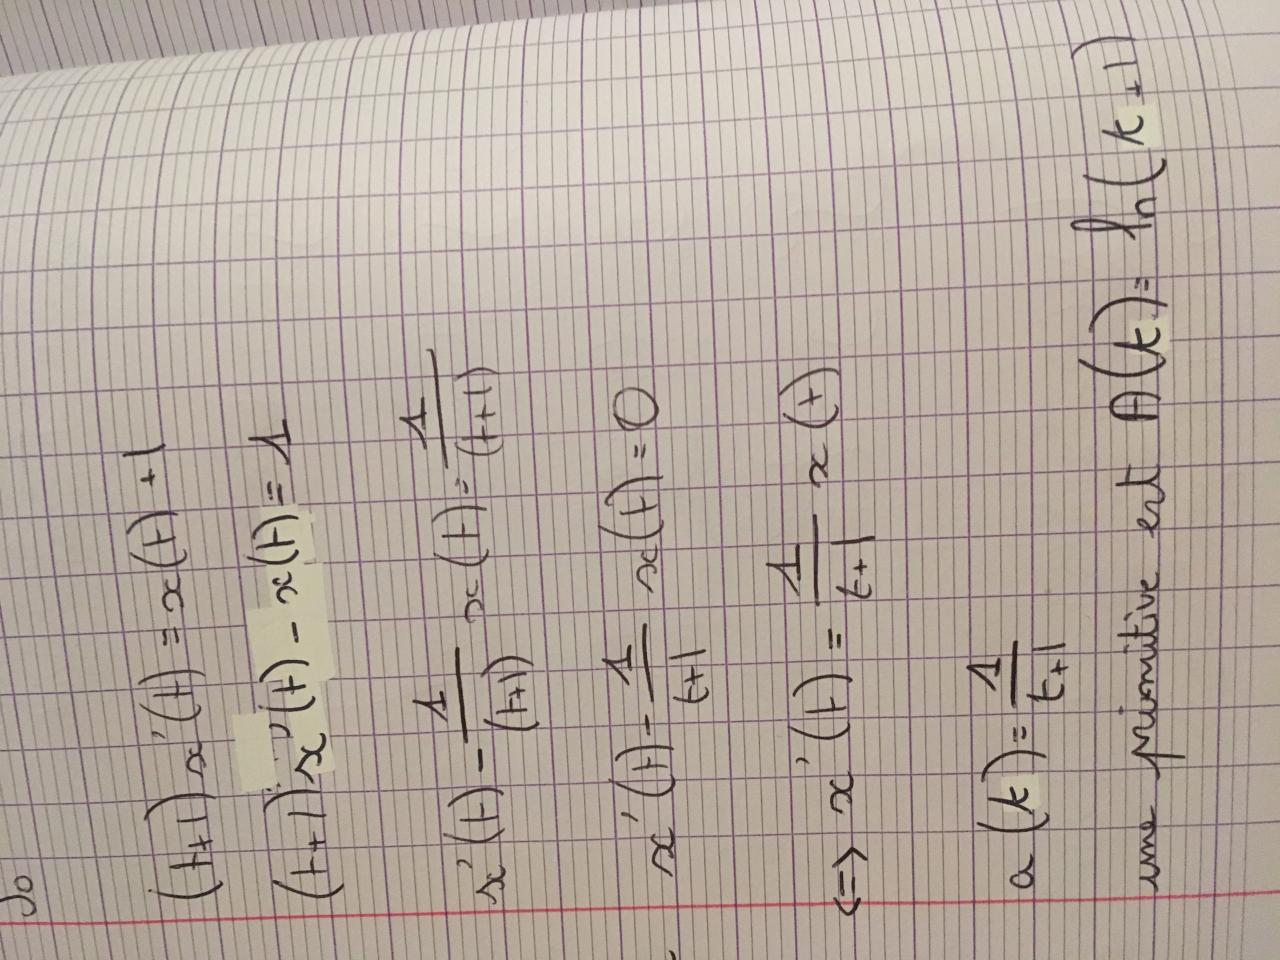 (t+1)x'(t) = x(t) + 1
(t+1)x'(t) - x(t) = 1
x'(t) - 1/(t+1) x(t) = 1/(t+1)
x'(t) - 1/t+1 x(t) = 0
<=> x'(t) = 1/t+1 x(t)
a(k) = 1/t+1
une primitive est A(k) = ln(k+1)